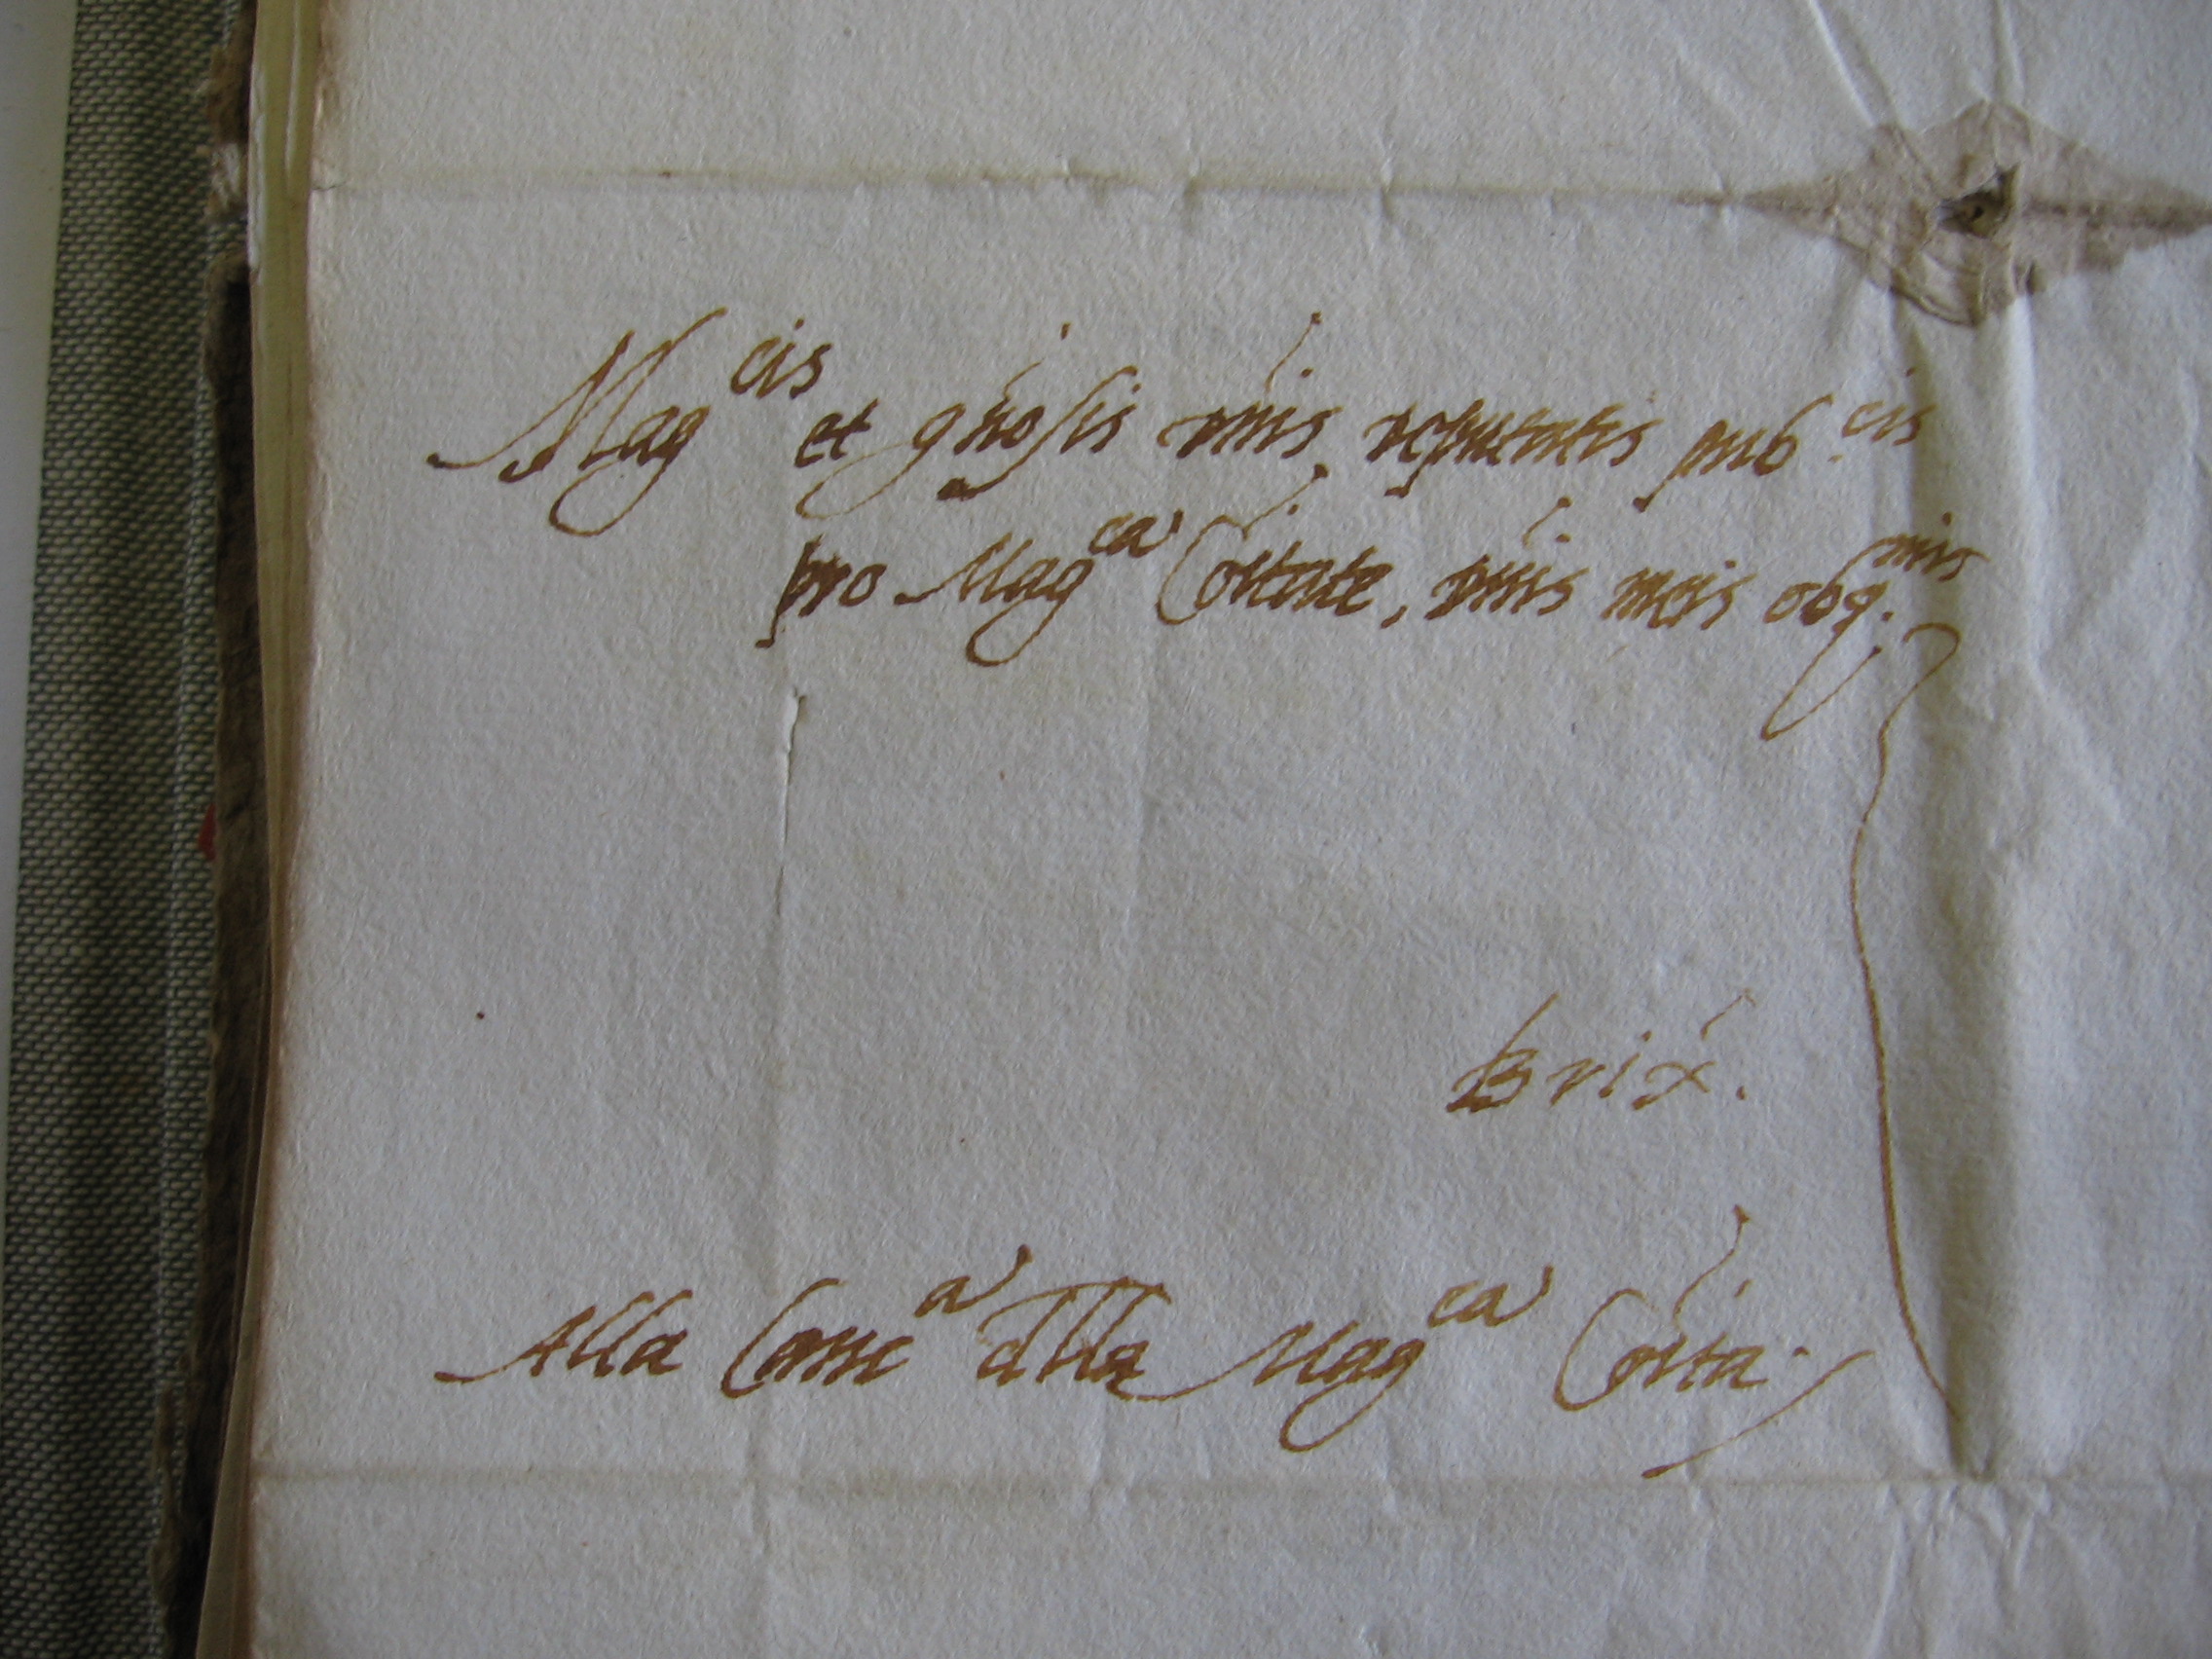 Mag.cis et gn̄osis vīris deputatis pub.cis
pro Mag.ca Cōitate, dn̄is meis obq.mis
Brix̄.
Alla Canc.a dlla Mag.ca Cōita.